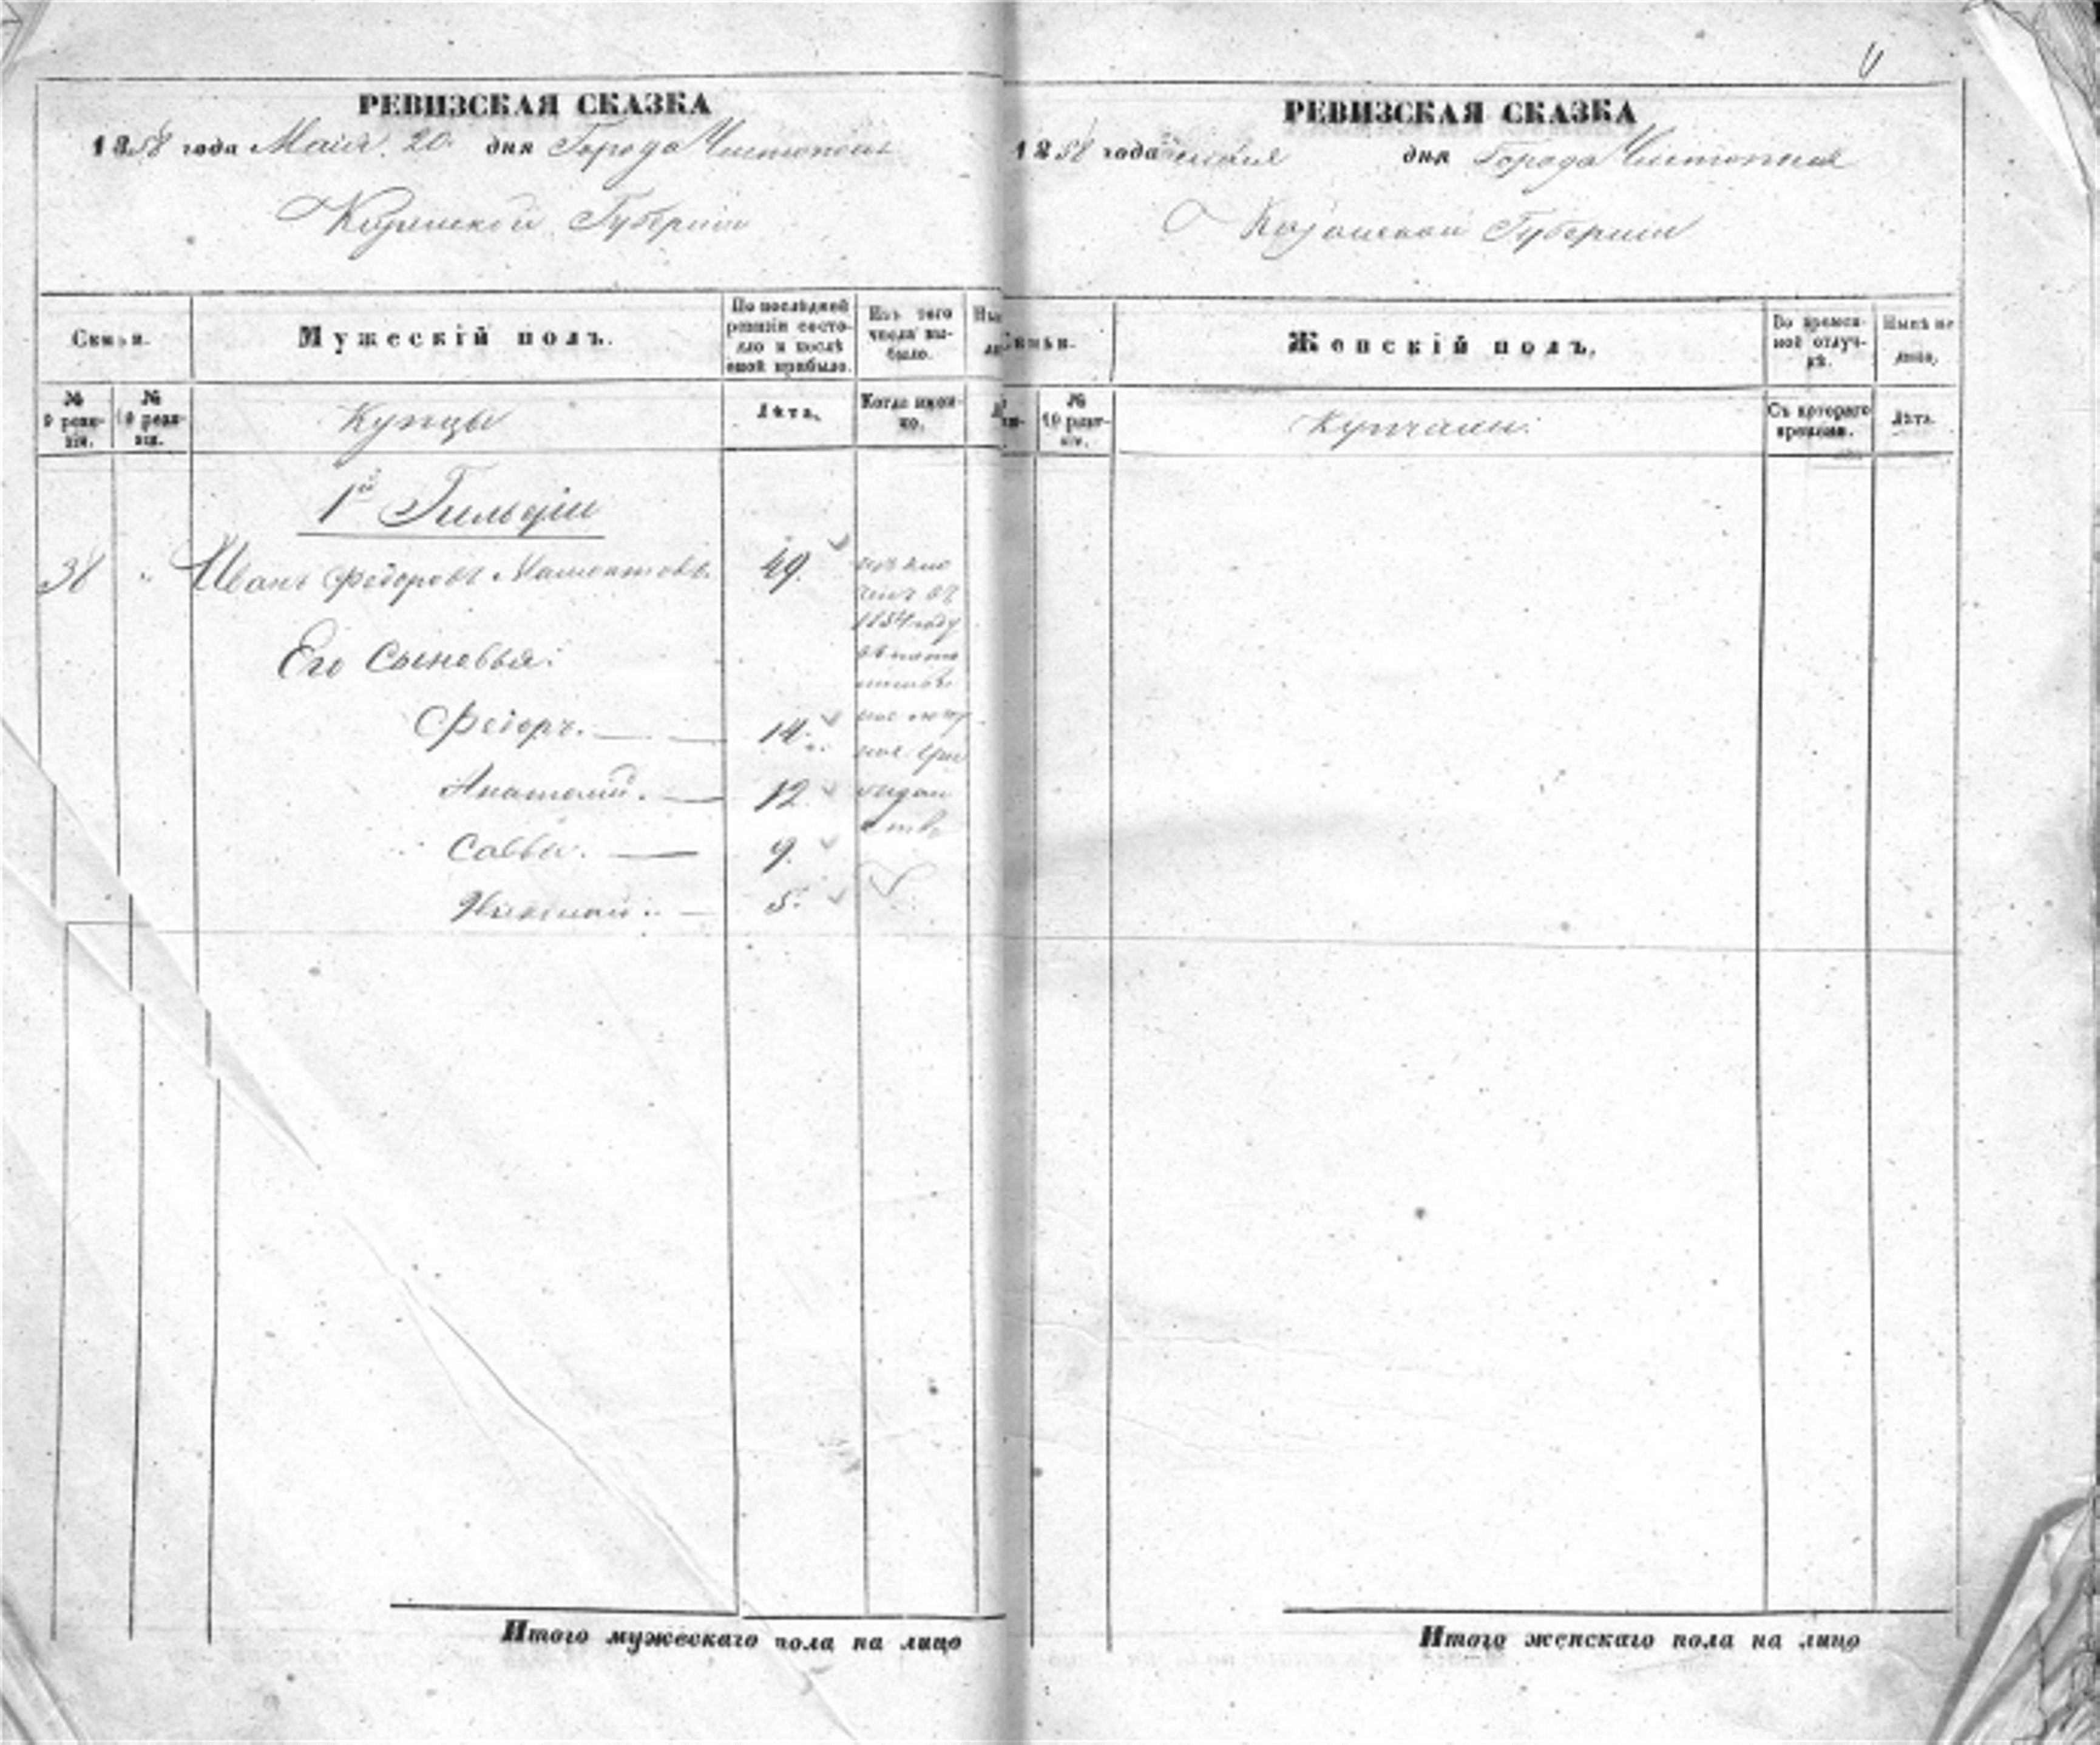 РЕВИЗСКАЯ СКАЗКА
1858 года Маія 20 дня Города Чистополя
Казанской Губерніи
Семьи.
Мужескій полъ.
По послѣдней ревизіи состояло и послѣ оной прибыло.
Изъ того числа выбыло.
№ 9 ревизіи.
№ 10 ревизіи.
Купцы
Лѣта.
Когда именно.
1й Гильдіи
38 " Иванъ Федоровъ Мамонтовъ. 49.
исключенъ въ 1854 году
Его Сыновья:
Федоръ. 14.
Анатолій. 12
Савва. 9.
Николай. 5.
Итого мужескаго пола на лицо
РЕВИЗСКАЯ СКАЗКА
1858 года дня Города Чистополя
Казанской Губерніи
Семьи.
Женскій полъ.
Во временной отлучкѣ.
Нынѣ на лицо.
№ 10 ревизіи.
Купчихи:
Съ котораго времени.
Лѣта.
Итого женскаго пола на лицо